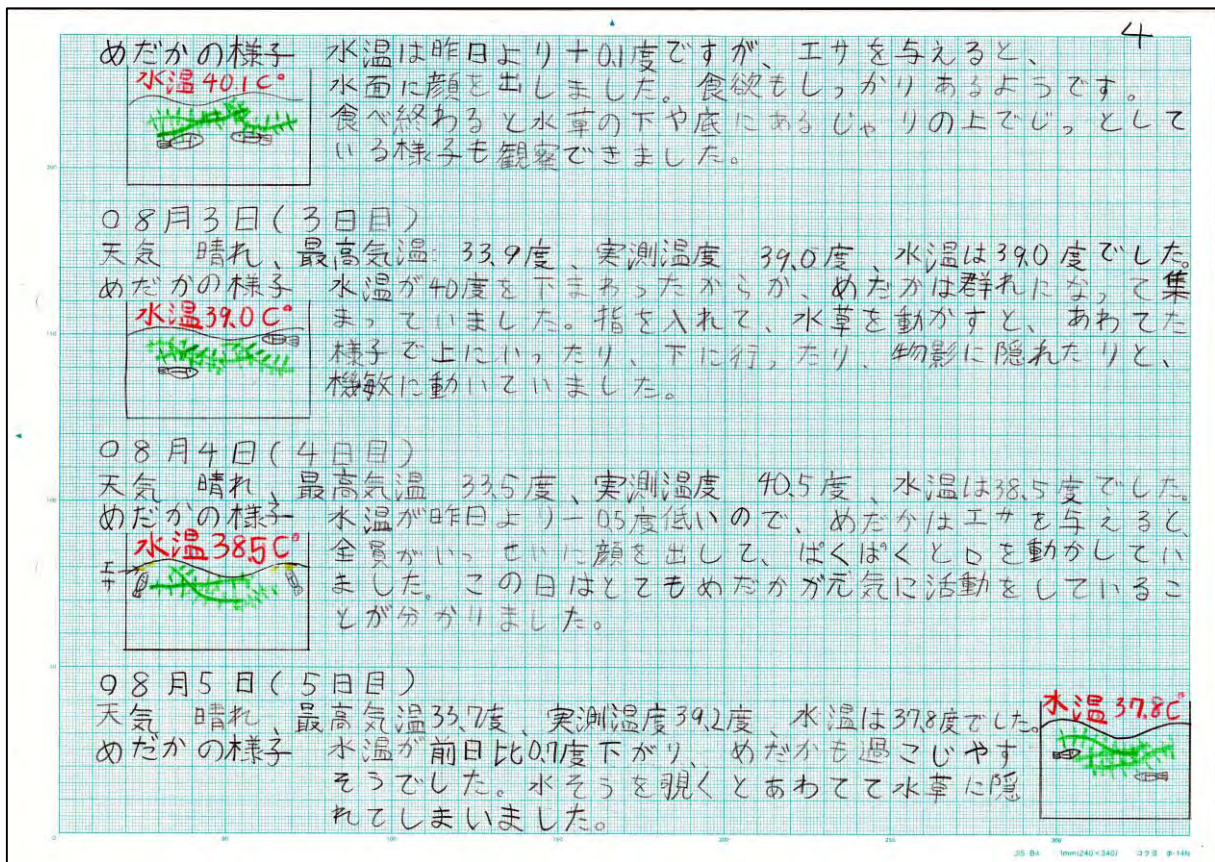 4
めだかの様子 水温は昨日より+0.1度ですが、エサを与えると、
水温40.1C°
水面に顔を出しました。食欲もしっかりあるようです。
食べ終わると水草の下や底にあるじゃりの上でじっとして
いる様子も観察できました。
○8月3日(3日目)
天気 晴れ、最高気温:33.9度、実測温度 39.0度、水温は39.0度でした。
めだかの様子 水温が40度を下まわったからか、めだかは群れになって集
水温39.0C°
まっていました。指を入れて、水草を動かすと、あわてた
様子で上にいったり、下に行ったり、物影に隠れたりと、
機敏に動いていました。
○8月4日(4日目)
天気 晴れ、最高気温 33.5度、実測温度 40.5度、水温は38.5度でした。
めだかの様子 水温が昨日より-0.5度低いので、めだかはエサを与えると、
水温38.5C°
エサ
全員がいっせいに顔を出して、ぱくぱくと口を動かしてい
ました。この日はとてもめだかが元気に活動をしているこ
とが分かりました。
○8月5日(5日目)
天気 晴れ、最高気温33.7度、実測温度39.2度、水温は37.8度でした。
水温37.8C°
めだかの様子 水温が前日比0.7度下がり、めだかも過こじやす
そうでした。水そうを覗くとあわてて水草に隠
れてしまいました。
200
150
100
50
0
50
100
150
200
250
300
JIS B4 1mm(240×340) コクヨ ホ-14N